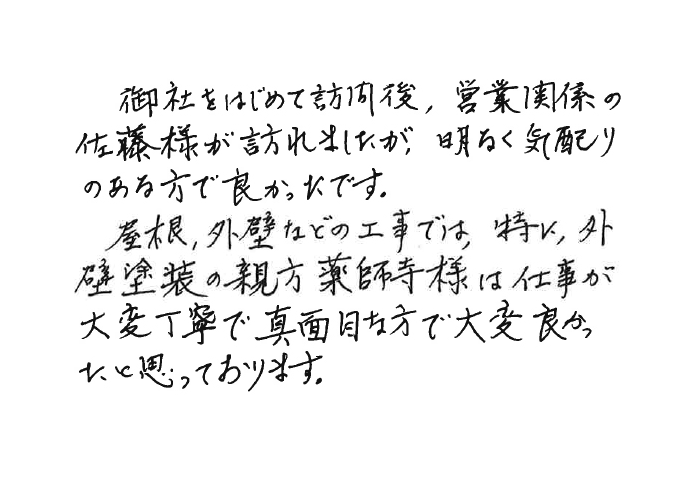 御社をはじめて訪問後，営業関係の
佐藤様が訪れましたが，明るく気配り
のある方で良かったです。
屋根，外壁などの工事では，特に，外
壁塗装の親方薬師寺様は仕事が
大変丁寧で真面目な方で大変良かっ
たと思っております。